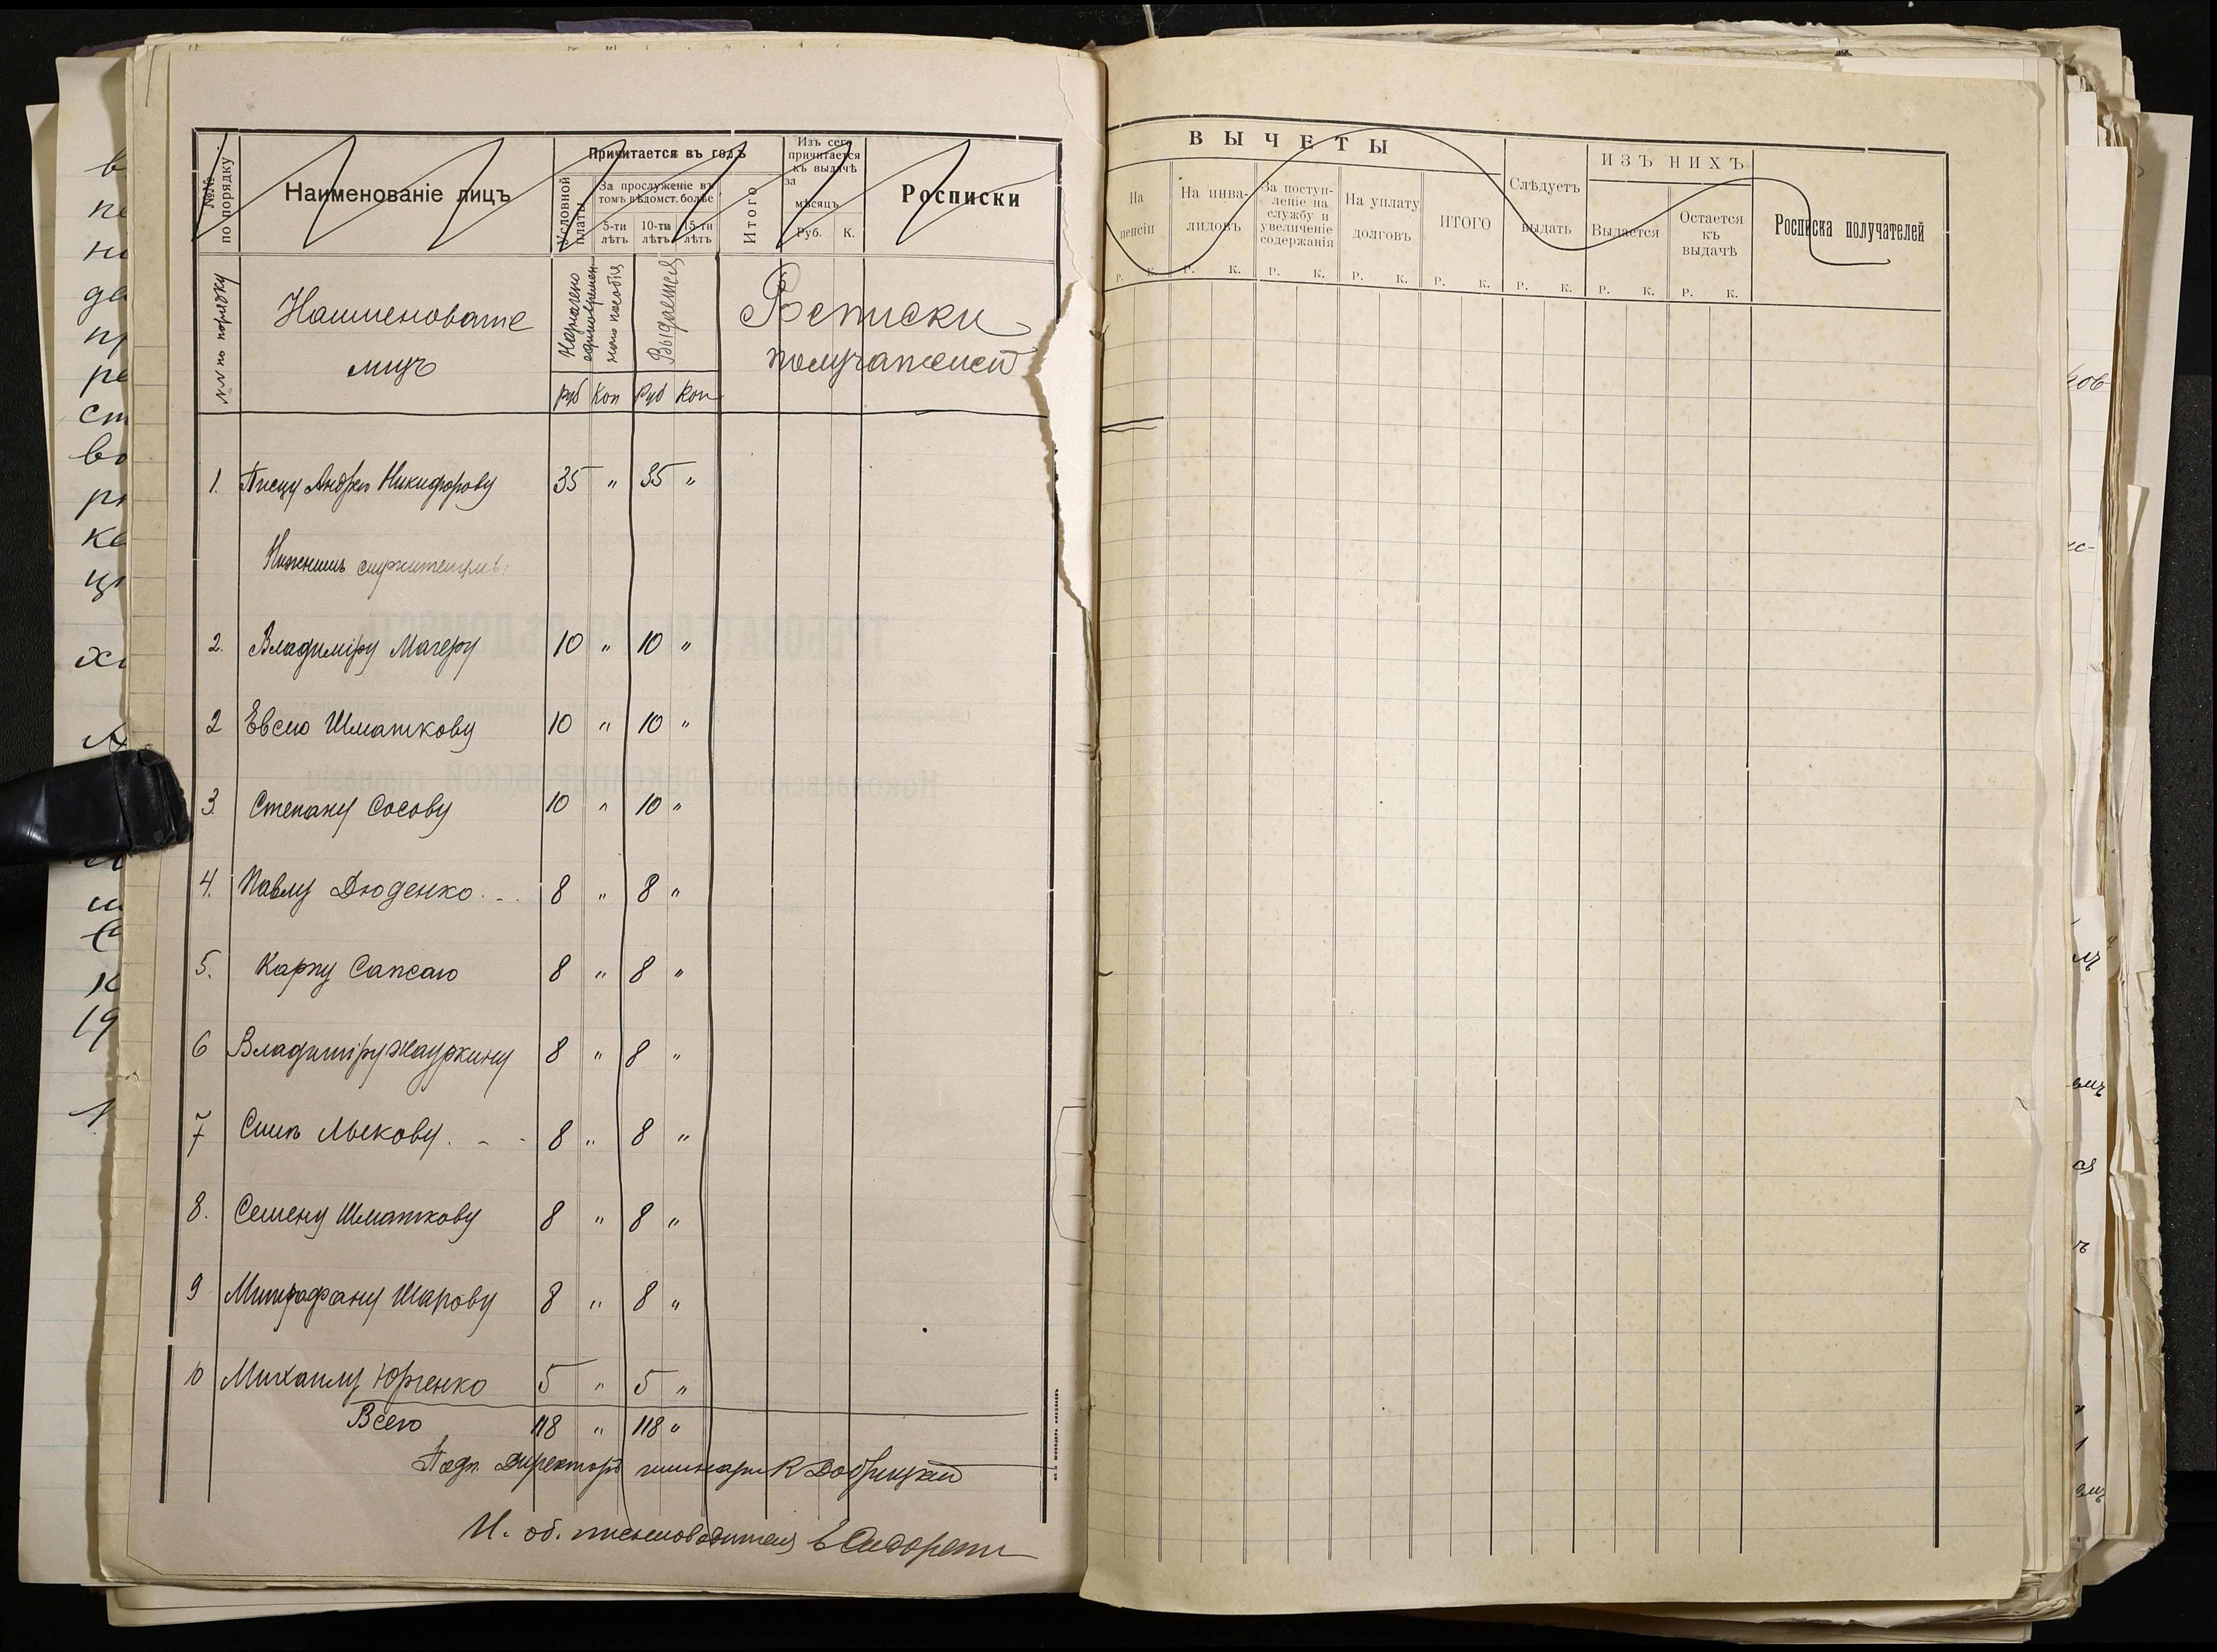 №№ по порядку
Наименованіе лицъ
Причитается въ годъ
Условной платы
За прослуженіе въ
томъ вѣдомст. болѣе
5-ти лѣтъ
10-ти лѣтъ
15-ти лѣтъ
Итого
Изъ сего
причитается
къ выдачѣ
за
мѣсяцъ
Руб. К.
Росписки
№№ по порядку
Наименование
лицъ
Назначено
единовремен-
наго пособія
Выдается
Руб Коп Руб Коп
Росписки
получателей
1. Писцу Андрею Никифорову 35 " 35 "
Нижнимъ служителямъ:
2. Владиміру Магеру 10 " 10 "
2 Евсею Шматкову 10 " 10 "
3. Степану Сосову 10 " 10 "
4. Павлу Дюденко 8 " 8 "
5. Карпу Сапсаю 8 " 8 "
6 Владиміру 8 " 8 "
7 Лыкову 8 " 8 "
8. Семену Шматкову 8 " 8 "
9 Митрофану Шарову 8 " 8 "
10 Михаилу Юрченко 5 " 5 "
Всего 118 " 118 "
Подп. Директоръ К Добрицкій
И. об. письмоводителя
ВЫЧЕТЫ
На
пенсіи
Р. К.
На инва-
лидовъ
Р. К.
За поступ-
леніе на
службу и
увеличеніе
содержанія
Р. К.
На уплату
долговъ
Р. К.
ИТОГО
Р. К.
Слѣдуетъ
выдать
Р. К.
ИЗЪ НИХЪ
Выдается
Р. К.
Остается
къ
выдачѣ
Р. К.
Росписка получателей